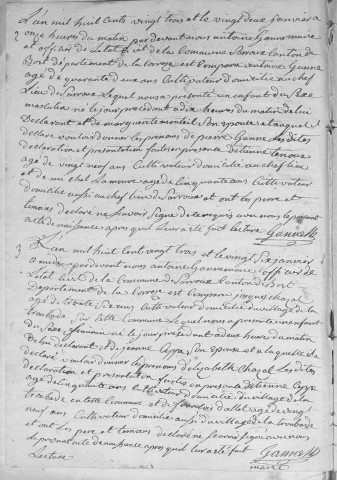 L'an mil huit cents vingt trois et le vingt deux janvier a
onze heures du matin par devant nous antoine Ganne maire
et officier de Letat Civil de la Commune de Sarroux Canton de
Bort departement de la Correze est comparu antoine Ganne
agé de quarante deux ans Cultivateur domicilié au chef
Lieu de Sarroux Lequel nous a presenté un enfant du Sexe
masculin né le jour precedent a dix heures du matin de lui
Declarant et de marguerite monteil Son epouse et auquel il
declare vouloir donner les prenoms de pierre Ganne Lesdites
declaration et presentation faites en presence d'etienne
agé de vingt neuf ans Cultivateur domicilié au chef lieu
et de michel Lamoure agé de cinquante ans Cultivateur
domicilié aussi au chef lieu de Sarroux et ont les pere et
temoins declaré ne Savoir Signer de ce requis avec nous le present
acte de naissance apres qu'il leur a été fait lecture Ganne
3 L'an mil huit cent vingt trois et le vingt Six janvier
a midi par devant nous antoine Ganne maire officier de
Letat Civil de la Commune de Sarroux Canton de Bort
Departement de la Correze est comparu jacques Chazal
agé de trente Six ans Cultivateur domicilié au village de la
trombade Sur ladite Commune Lequel nous a presenté un enfant
du Sexe feminin né le jour precedent a deux heures du matin
De lui declarant et de jeanne Cappe Son epouse et a laquelle il a
declaré vouloir donner les prenoms d'elizabeth Chazal Lesdites
declaration et presentation faites en presence d'etienne Cappe
agé de cinquante ans Cultivateur domicilié du village de la
trombade en cette Commune et de françois d'allet agé de vingt
neuf ans Cultivateur domicilié aussi du village de la trombade
et ont les pere et temoins declaré ne Savoir Signer avec nous
le present acte de naissance apres qu'il leur a été fait Ganne
Lecture maire